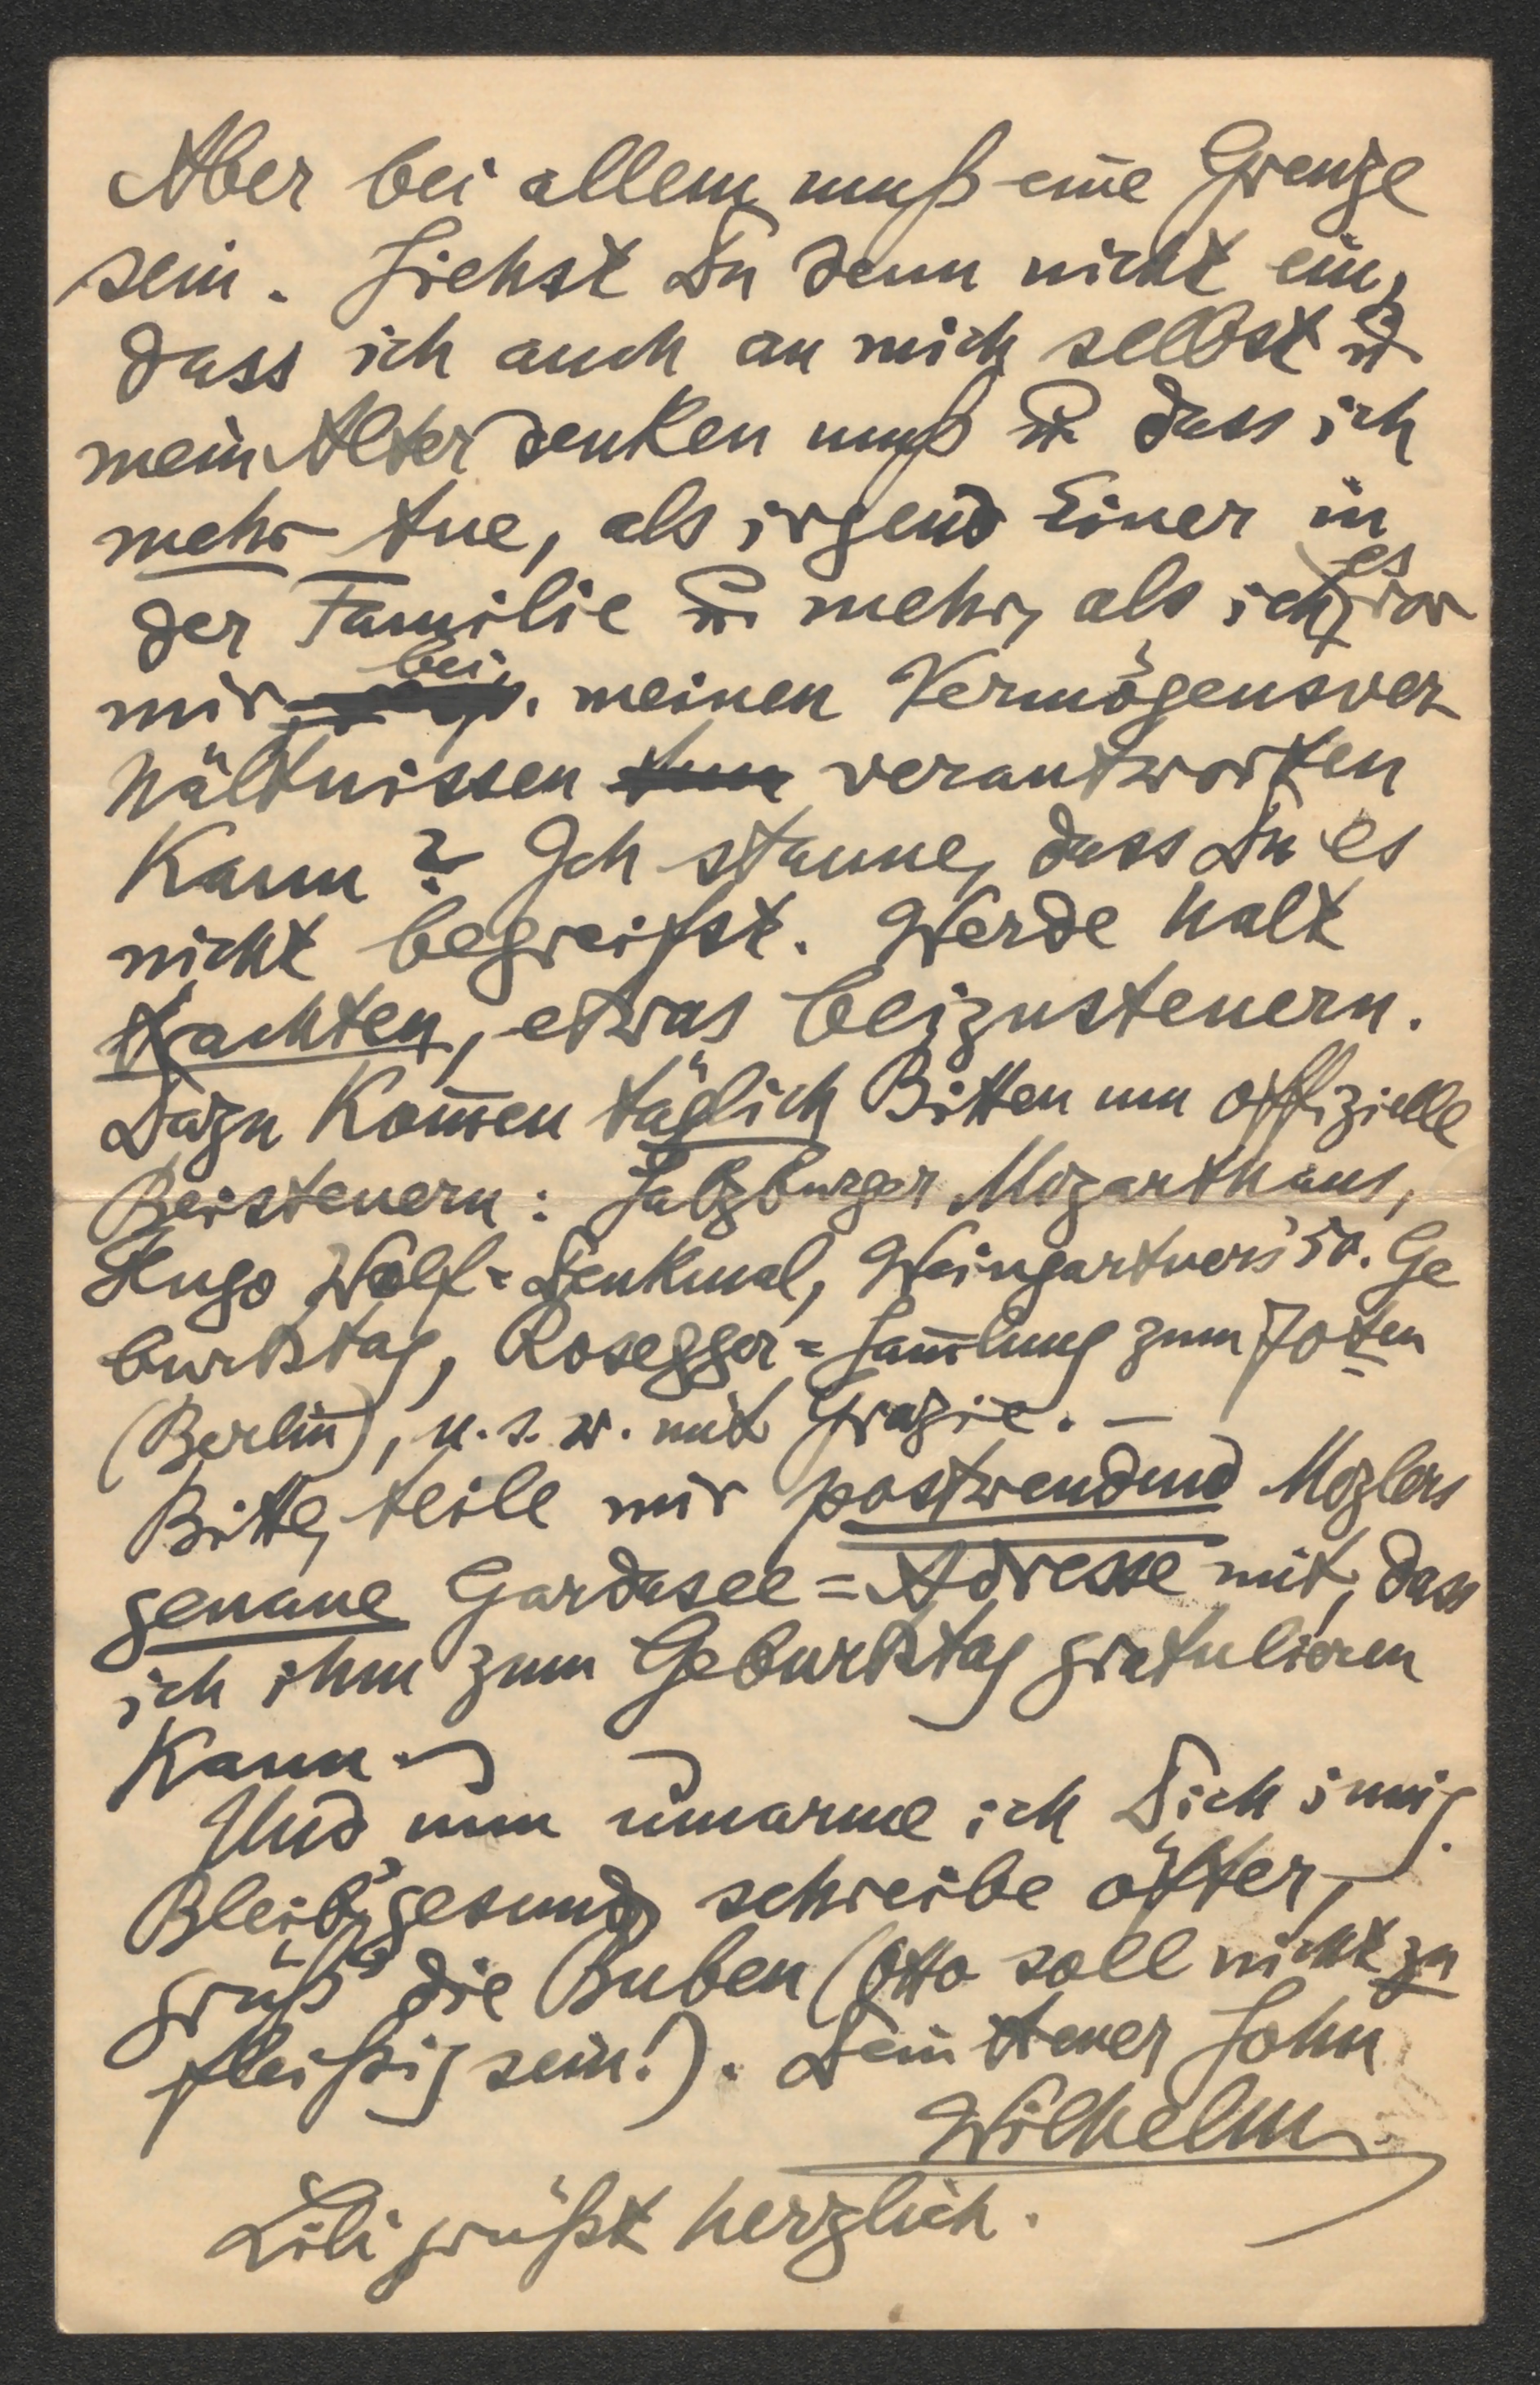 Aber bei allem muß eine Grenze
sein. Siehst Du denn nicht ein,
dass ich auch an mich selbst u
mein Alter denken muß u dass ich
mehr tue, als irgend Einer in
der Familie u mehr, als ich es vor
mir bei meinen Vermögensver
hältnissen verantworten
kann? Ich staune, dass Du es
nicht begreifst. Werde halt
trachten, etwas beizusteuern.
Dazu kom̄en täglich Bitten um offizielle
Beisteuern: Salzburger Mozarthaus,
Hugo Wolf=Denkmal, Weingartners 50. Ge
burtstag, Rosegger=Sam̄lung zum 70ten
(Berlin), u.s.w. mit Grazie. –
Bitte, teile mir postwendend Mozlers
genaue Gardasee=Adresse mit, dass
ich ihm zum Geburtstag gratulieren
kann.
Und nun umarme ich Dich innig.
Bleib' gesund, schreibe öfter,
grüß' die Buben (Otto soll nicht zu
fleißig sein!). Dein treuer Sohn
Wilhelm
Lili grüßt herzlich.